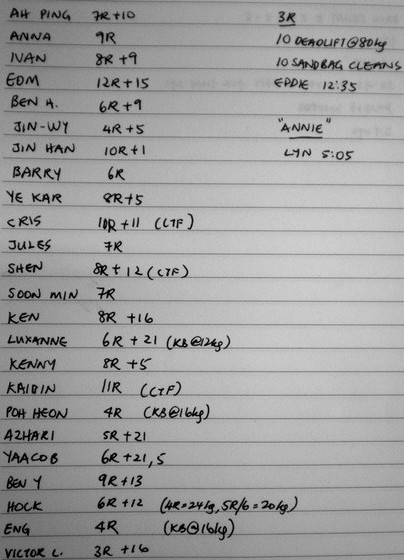 AH PING 7R+10
ANNA 9R
IVAN 8R+9
EDM 12R+15
BEN H. 6R+9
JIN-WY 4R+5
JIN HAN 10R+1
BARRY 6R
YE KAR 8R+5
CRIS 10R+11 (CTF)
JULES 7R
SHEN 8R+12 (CTF)
SOON MIN 7R
KEN 8R+16
LUXANNE 6R+21 (KB@12kg)
KENNY 8R+5
KAIBIN 11R (CTF)
POH HEON 4R (KB@16kg)
AZHARI 5R+21
YAACOB 6R+21,5
BEN Y 9R+13
HOCK 6R+12 (4R=24kg, 5R/6=20kg)
ENG 4R (KB@16kg)
VICTOR L. 3R+16
3R
10 DEADLIFT@80kg
10 SANDBAG CLEANS
EDDIE 12:35
"ANNIE"
LYN 5:05